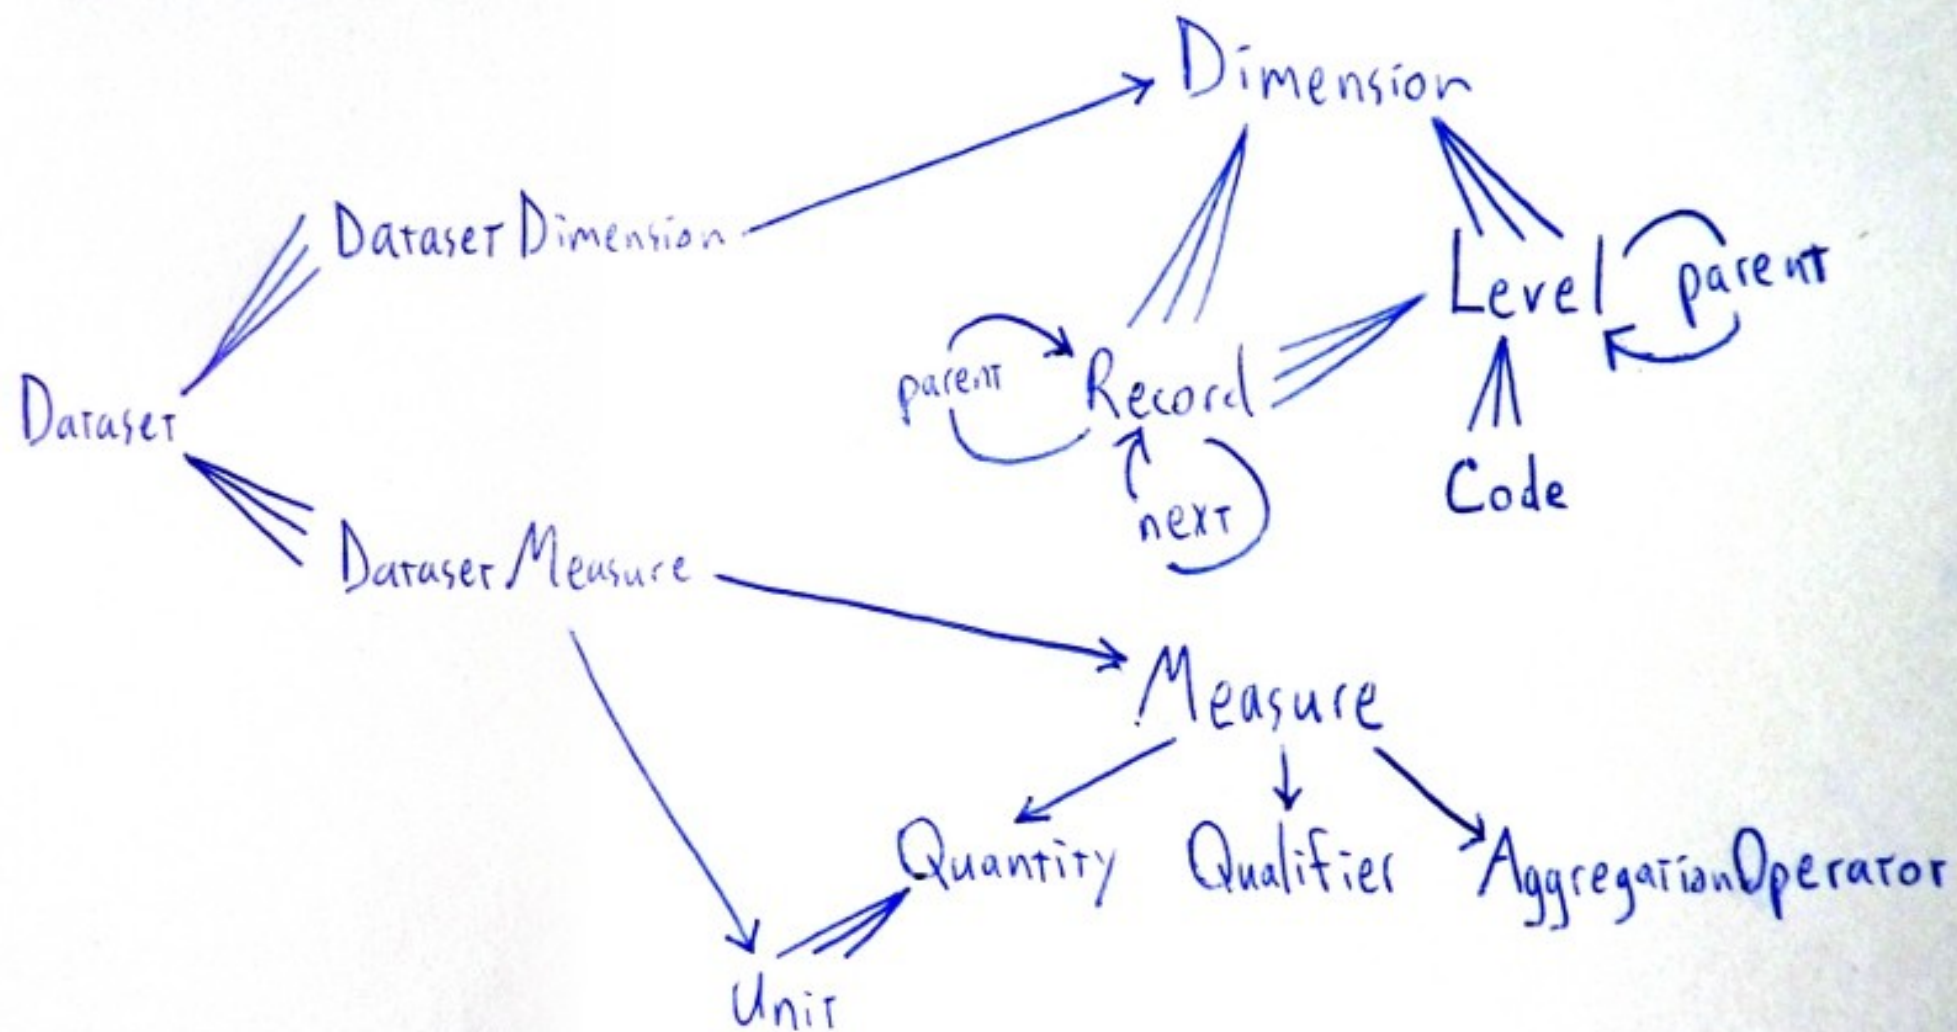 Dimension
Dataset Dimension
Level
parent
parent
Record
Dataset
Code
next
Dataset Measure
Measure
Quantity
Qualifier
AggregationOperator
Unit